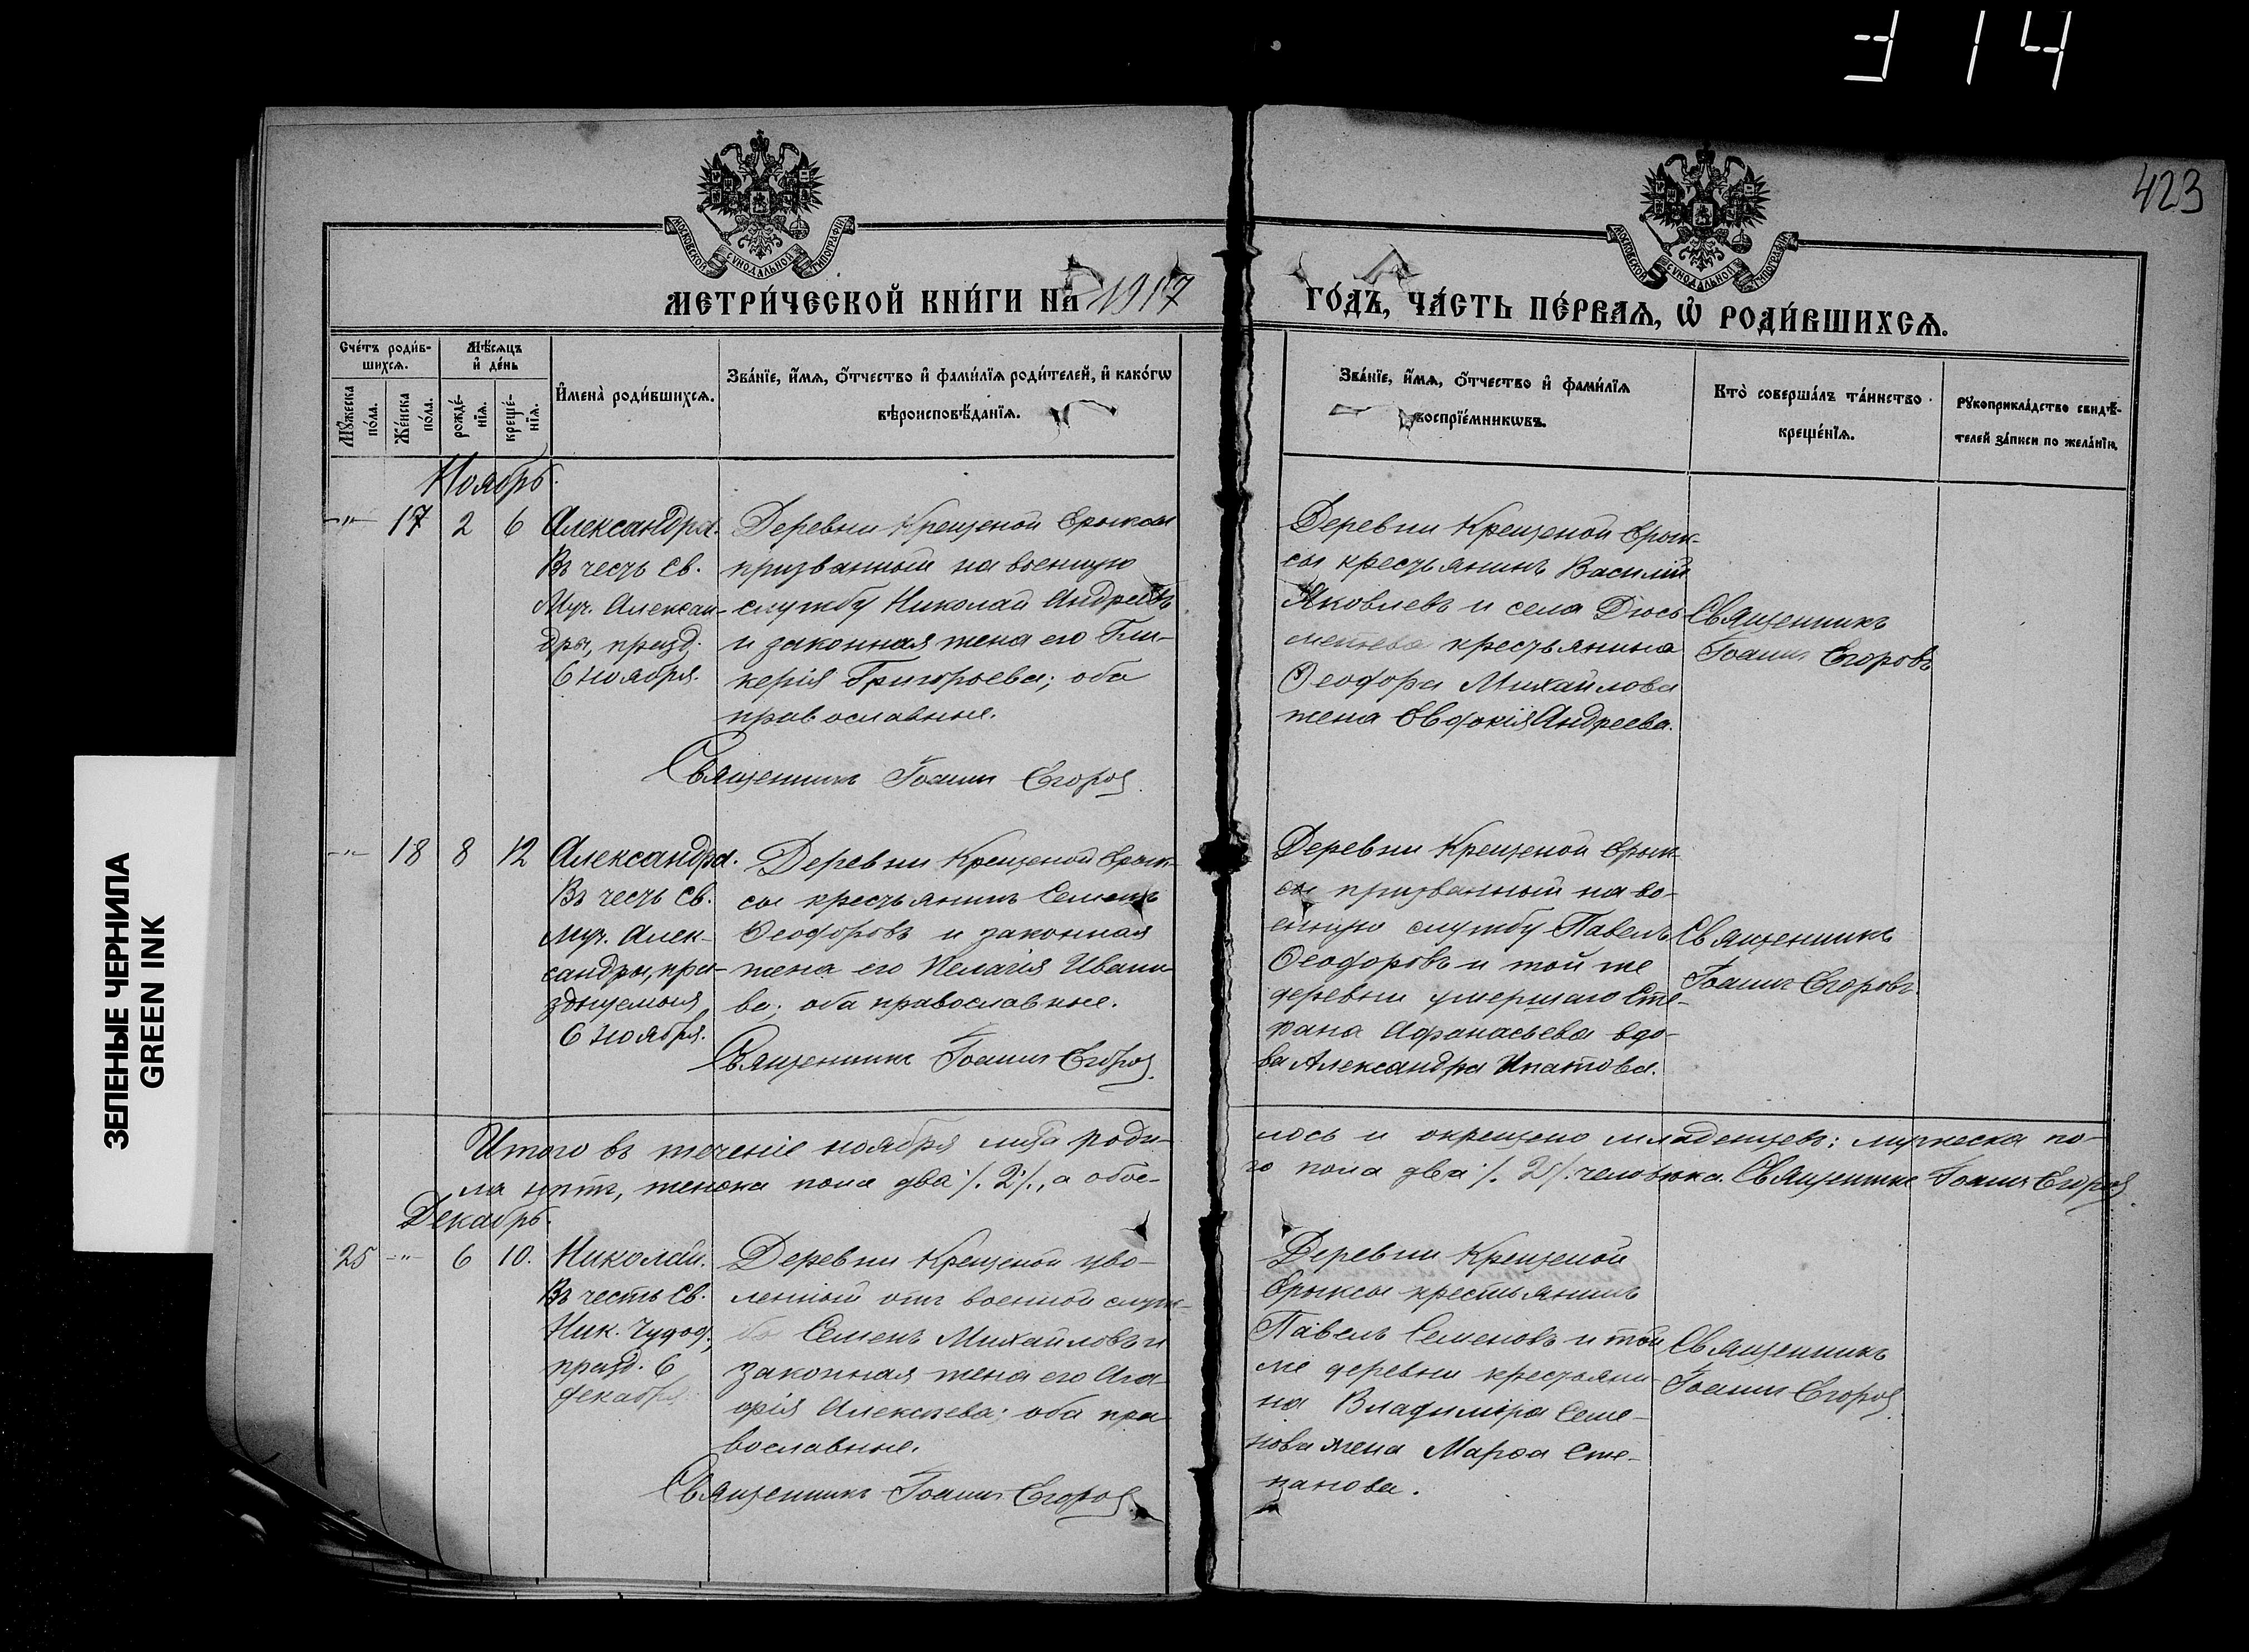 314
423
МОСКОВСКОЙ СѴНОДАЛЬНОЙ ТИПОГРАФІИ
МОСКОВСКОЙ СѴНОДАЛЬНОЙ ТИПОГРАФІИ
МЕТРИ́ЧЕСКОЙ КНИ́ГИ НА 1917
ГО́ДЪ, ЧА́СТЬ ПЕ́РВАѦ, Ѽ РОДИ́ВШИХСѦ.
Сче́тъ роди́в-
шихсѧ.
Мѣ́сѧцъ
и҆ де́нь
Мꙋ́жеска
по́ла.
Же́нска
по́ла.
рожде́-
нїѧ.
креще́-
нїѧ.
И҆мена̀ роди́вшихсѧ.
Зва́нїе, и҆́мѧ, ѻ҆́тчество и҆ фами́лїѧ роди́телей, и҆ како́гѡ
вѣроисповѣ́данїѧ.
Зва́нїе, и҆́мѧ, ѻ҆́тчество и҆ фами́лїѧ
воспрїе́мникѡвъ.
Кто̀ соверша́лъ та́инство
креще́нїѧ.
Рꙋкоприкла́дство свидѣ́-
телей за́писи по жела́нїю.
Ноябрь.
-"- 17 2 6 Александра.
Въ честь св.
Муч. Алексан-
дры, празд.
6 ноября.
Деревни Крещеной Ерыксы
призванный на военную
службу Николай Андреевъ
и законная жена его Гли-
керія Григорьева; оба
православные.
Священникъ Іоаннъ Егоровъ
Деревни Крещеной Ерык-
сы крестьянинъ Василій
Яковлевъ и села Дюсь-
метьева крестьянина
Ѳеодора Михайлова
жена Евдокія Андреева.
Священникъ
Іоаннъ Егоровъ
-"- 18 8 12 Александра.
Въ честь св.
муч. Алек-
сандры, пра-
зднуемыя
6 ноября.
Деревни Крещеной Ерык-
сы крестьянинъ Семенъ
Ѳеодоровъ и законная
жена его Пелагія Ивано-
ва; оба православные.
Священникъ Іоаннъ Егоровъ
Деревни Крещеной Ерык-
сы призванный на во-
енную службу Павелъ
Ѳеодоровъ и той же
деревни умершаго Сте-
пана Афанасьева вдо-
ва Александра Ипатова.
Священникъ
Іоаннъ Егоровъ
Итого въ теченіе ноября м-ца роди-
лось и окрещено младенцевъ: мужеска по-
ла нѣтъ, женска пола два ./. 2 ./., а обое-
го пола два ./. 2 ./. человѣка. Священникъ Іоаннъ Егоровъ
Декабрь.
25 -"- 6 10. Николай.
Въ честь св.
Ник. Чудод.,
празд. 6
декабря.
Деревни Крещеной уво-
ленный отъ военной служ-
бы Семенъ Михайловъ и
законная жена его Ага-
фія Алексѣева; оба пра-
вославные.
Священникъ Іоаннъ Егоровъ
Деревни Крещеной
Ерыксы крестьянинъ
Павелъ Семеновъ и той
же деревни крестьяни-
на Владиміра Семе-
нова жена Марѳа Сте-
панова.
Священникъ
Іоаннъ Егоровъ
ЗЕЛЕНЫЕ ЧЕРНИЛА
GREEN INK